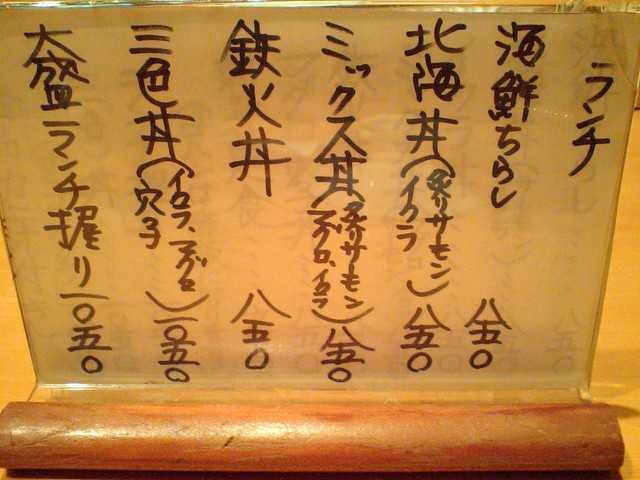 ランチ
海鮮ちらし 八五〇
北海丼(炙りサーモン イクラ) 八五〇
ミックス丼(炙りサーモン マグロ、イクラ) 八五〇
鉄火丼 八五〇
三色丼(イクラ、マグロ 穴子) 一〇五〇
大盛ランチ握り 一〇五〇